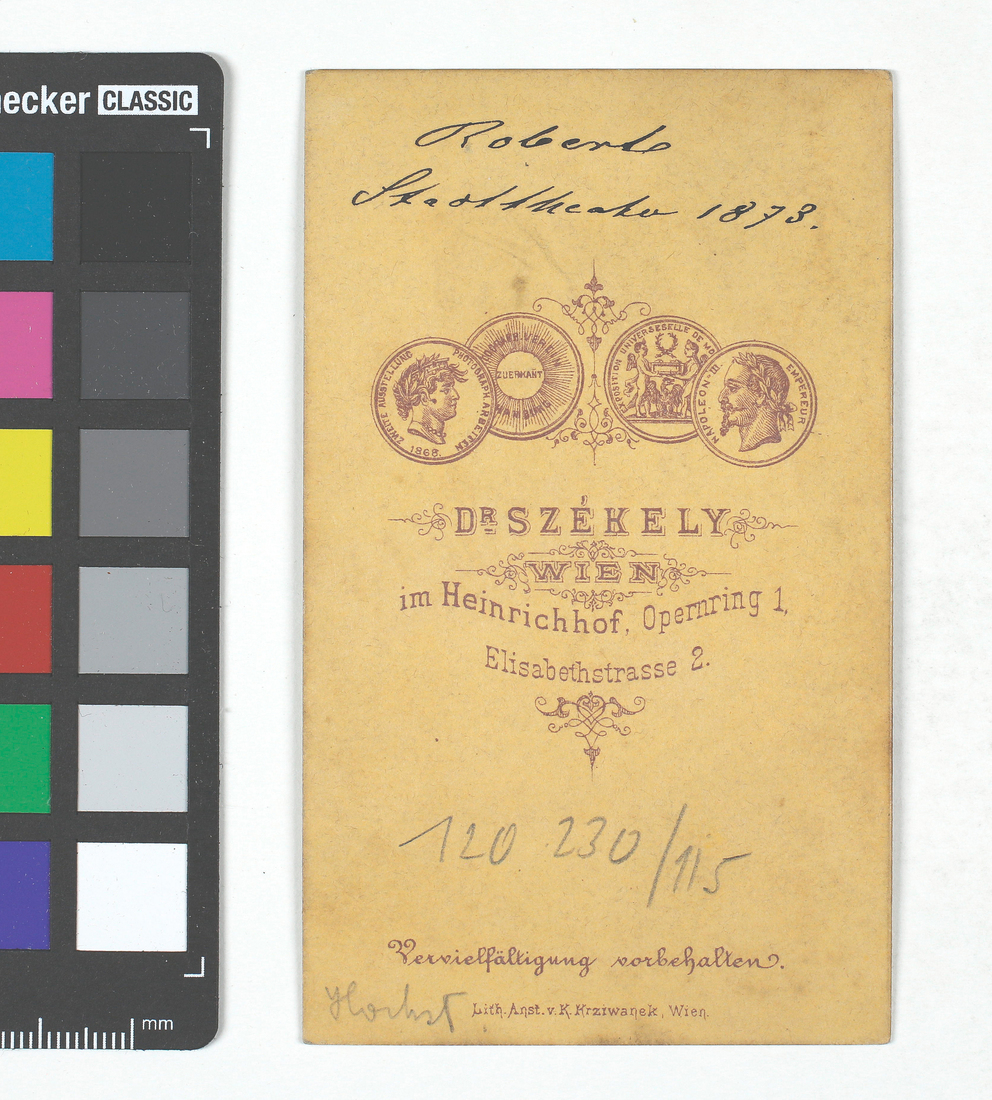 ecker CLASSIC
Robert
Stadttheater 1873.
ZWEITE AUSSTELLUNG PHOTOGRAPH. ARBEITEN
1868.
ZUERKANT
EXPOSITION UNIVERSESELLE DE MO
NAPOLEON · III · EMPEREUR
DR SZÉKELY
WIEN
im Heinrichhof, Opernring 1,
Elisabethstrasse 2.
120 230/115
Vervielfältigung vorbehalten.
Lith. Anst. v. K. Krziwanek, Wien.
mm